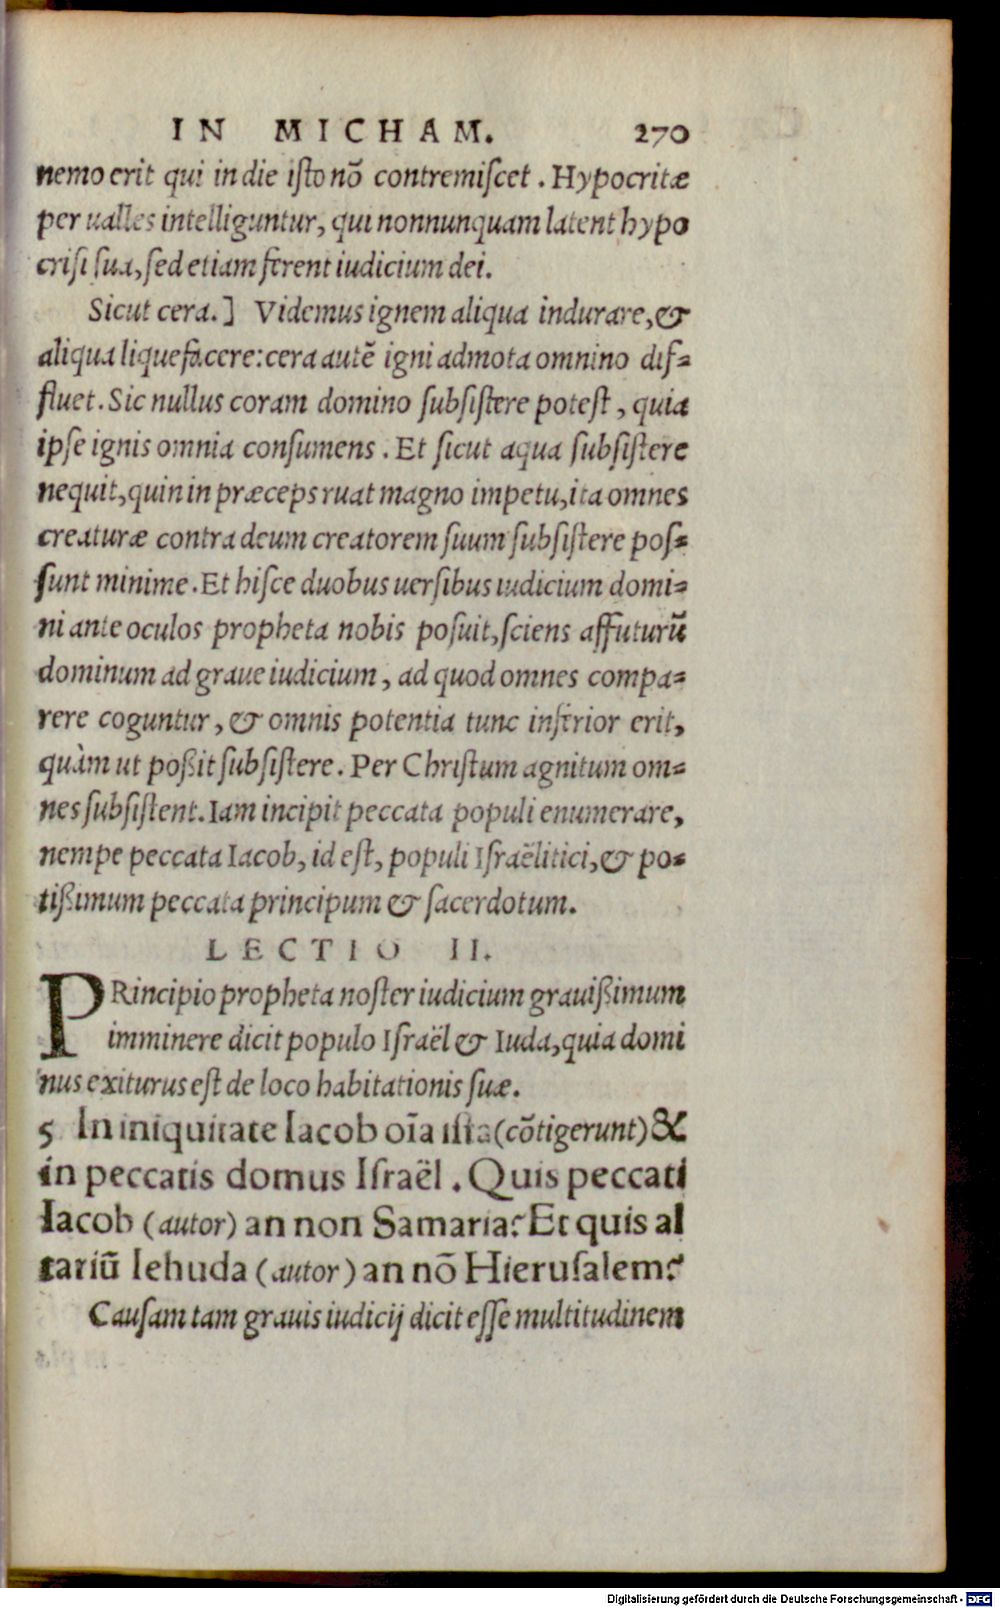 IN MICHAM. 270
nemo erit qui in die isto nõ contremiscet. Hypocritæ
per ualles intelliguntur, qui nonnunquam latent hypo
crisi sua, sed etiam ferent iudicium dei.
Sicut cera.] Videmus ignem aliqua indurare, &
aliqua liquefacere: cera autẽ igni admota omnino dif-
fluet. Sic nullus coram domino subsistere potest, quia
ipse ignis omnia consumens. Et sicut aqua subsistere
nequit, quin in præceps ruat magno impetu, ita omnes
creaturæ contra deum creatorem suum subsistere pos-
sunt minime. Et hisce duobus uersibus iudicium domi-
ni ante oculos propheta nobis posuit, sciens affuturũ
dominum ad graue iudicium, ad quod omnes compa-
rere coguntur, & omnis potentia tunc inferior erit,
quàm ut poßit subsistere. Per Christum agnitum om-
nes subsistent. Iam incipit peccata populi enumerare,
nempe peccata Iacob, id est, populi Israëlitici, & po-
tißimum peccata principum & sacerdotum.
LECTIO II.
PRincipio propheta noster iudicium grauißimum
imminere dicit populo Israël & Iuda, quia domi
nus exiturus est de loco habitationis suæ.
5 In iniquitate Iacob oĩa ista (cõtigerunt) &
in peccatis domus Israël. Quis peccati
Iacob (autor) an non Samaria? Et quis al
tariũ Iehuda (autor) an nõ Hierusalem?
Causam tam grauis iudicij dicit esse multitudinem
Digitalisierung gefördert durch die Deutsche Forschungsgemeinschaft - DFG